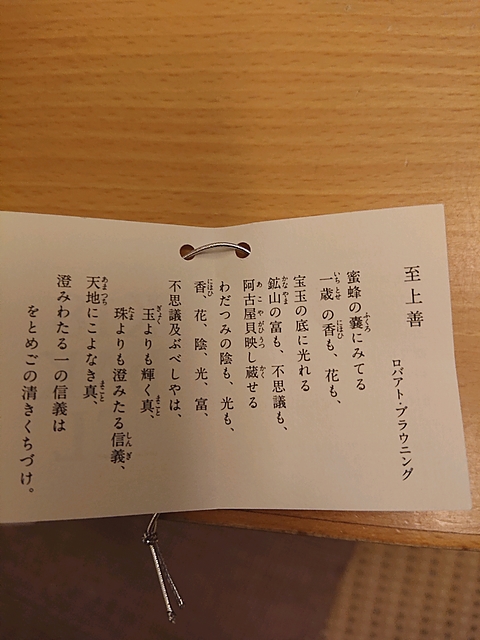 至上善
ロバアト・ブラウニング
蜜蜂の嚢にみてる
一歳の香も、花も、
宝玉の底に光れる
鉱山の富も、不思議も、
阿古屋貝映し蔵せる
わだつみの陰も、光も、
香、花、陰、光、富、
不思議及ぶべしやは、
玉よりも輝く真、
珠よりも澄みたる信義、
天地にこよなき真、
澄みわたる一の信義は
をとめごの清きくちづけ。